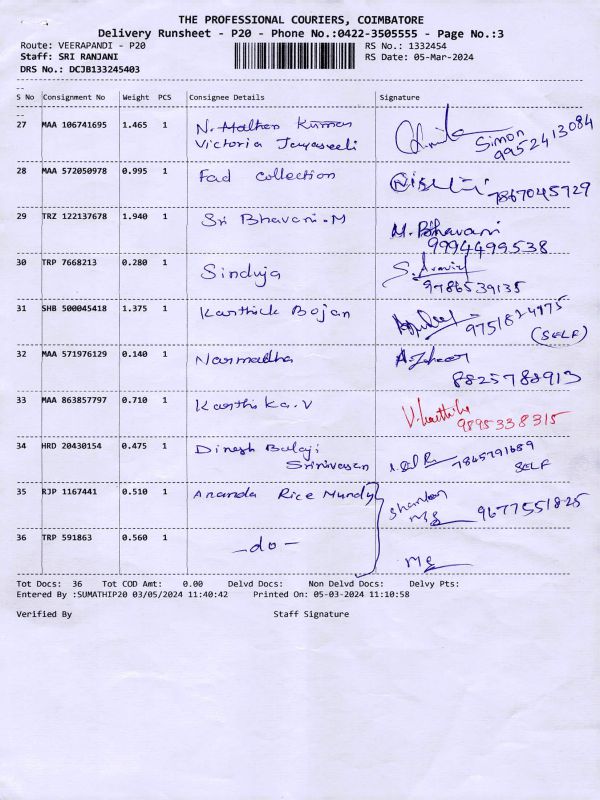 THE PROFESSIONAL COURIERS, COIMBATORE
Delivery Runsheet - P20 - Phone No.:0422-3505555 - Page No.:3
Route: VEERAPANDI - P20 RS No.: 1332454
Staff: SRI RANJANI RS Date: 05-Mar-2024
DRS No.: DCJB133245403
S No Consignment No Weight PCS Consignee Details Signature
27 MAA 106741695 1.465 1 N. Mathen Kumar
Victoria Jeyaseeli Simon
9952413084
28 MAA 572050978 0.995 1 Fad Collection 7867045729
29 TRZ 122137678 1.940 1 Sri Bhavani.M M. Bhavani
9994499538
30 TRP 7668213 0.280 1 Sinduja S. Aravind
9786539135
31 SHB 500045418 1.375 1 Karthick Bojan 9751824975
(SELF)
32 MAA 571976129 0.140 1 Narmadha
8825788913
33 MAA 863857797 0.710 1 Karthika.V V. karthika
9895338315
34 HRD 20430154 0.475 1 Dinesh Balaji
Srinivasan 7845791689
SELF
35 RJP 1167441 0.510 1 Ananda Rice Mundy 9677551825
36 TRP 591863 0.560 1 -do-
Tot Docs: 36 Tot COD Amt: 0.00 Delvd Docs: Non Delvd Docs: Delvy Pts:
Entered By :SUMATHIP20 03/05/2024 11:40:42 Printed On: 05-03-2024 11:10:58
Verified By Staff Signature